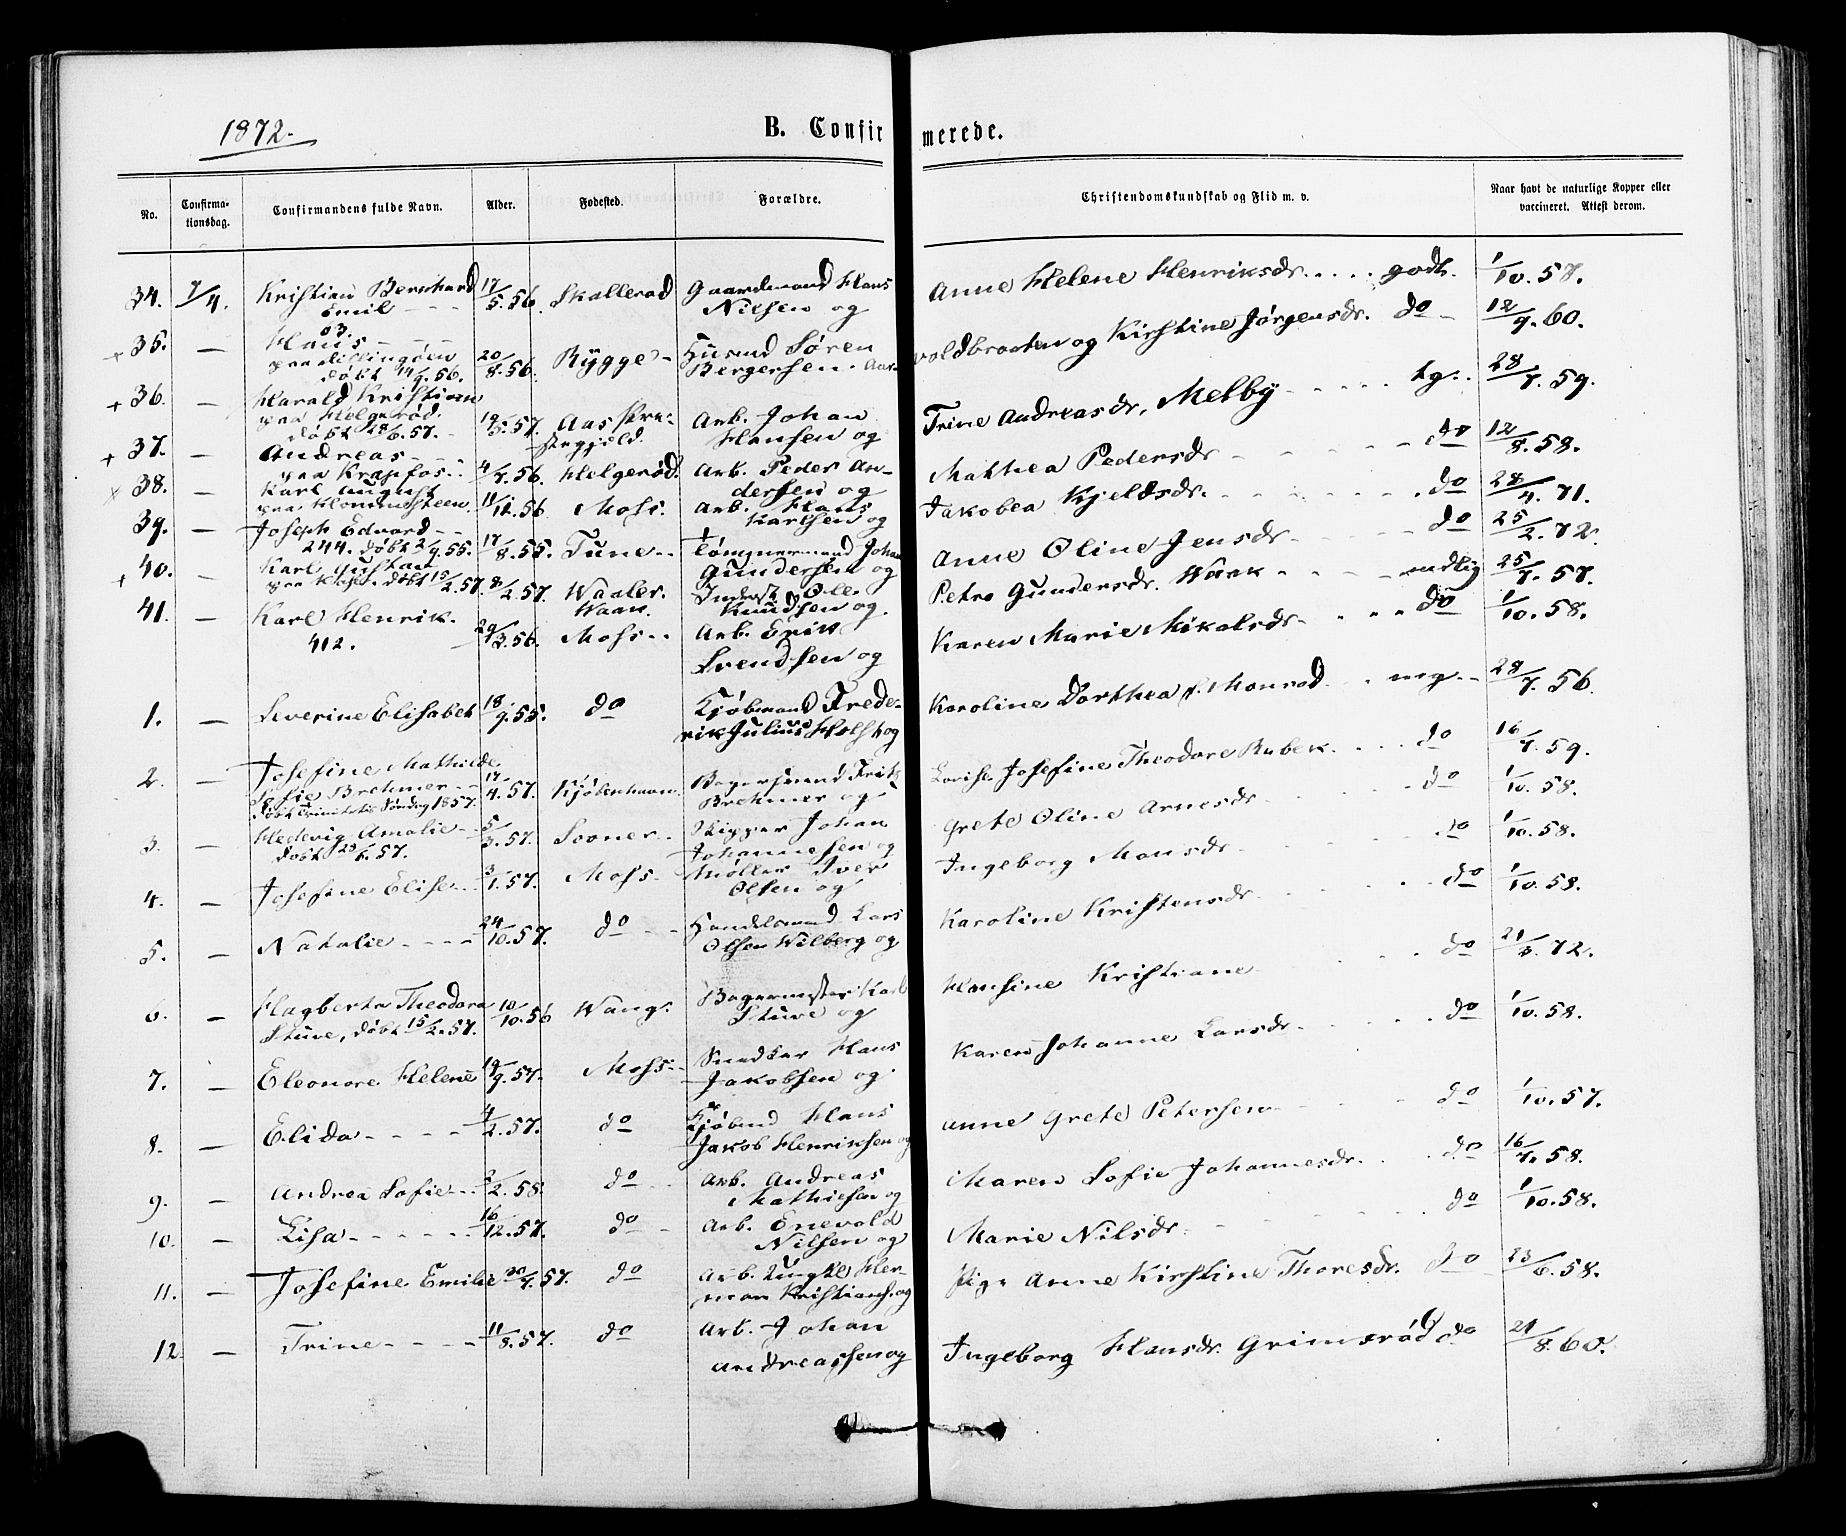 1872.
B. Confirmerede.
No.
Confirma-
tionsdag.
Confirmandens fulde Navn.
Alder.
Fødested.
Forældre.
Christendomskundskab og Flid m. v.
Naar havt de naturlige Kopper eller
vaccineret. Attest derom.
34. 7/4. Kristian Bernhard 17/5.56. Skallerød Gaardmand Hans Anne Helene Henriksdr. .... godt. 1/10.57.
Emil - - - Nilsen og
03.
+ 35. — Hans - - - - 20/8.56. Rygge - Husmd Søren voldbraaten og Kirstine Jørgensdr. do - 12/9.60.
paa Dillingøen Bergersen. Aas-
døbt 14/9.56.
+ 36. — Harald Kristian 19/5.57. Aas Præ- Arb. Johan Trine Andreasdr. Melby - - - - - tg. 28/7.59.
paa Helgerød. stegjeld. Hansen og
døbt 28/6.57. -
+ 37. — Andreas - - - - 4/7.56. Helgerød. Arb. Peder An- Mathea Pedersdr - - - - - - do 12/8.58.
paa Krapfos - - dersen og
x 38. — Karl August 11/12.56 Moss. Arb. Hans Jakobea Kjeldsdr. - - - - - - . do 28/4.71.
Karlsen og
39. — Joseph Edvard - - 17/8.55. Tune - - Tømmermand Johan Anne Oline Jensdr - - - - - do 25/2.72.
244. døbt 2/9.55. Gundersen og
+ 40. — Karl Gustav 8/2.57. Waaler. Inderst Ole Petro Gundersdr. Wark - - - - mdlig 25/7.57.
døbt 15/2.57. Knudsen og
41. — Karl Henrik. 29/12.56. Moss - - Arb. Erik Karen Marie Mikalsdr - - . . do 1/10.58.
412. Svendsen og
1. — Severine Elisabet 18/9.55. do Kjøbmand Frede- Karoline Dorthea f. Monrad. - mg. - 28/7.56.
rik Julius Holst og
2. — Josefine Mathilde 17/4.57. Kjøbenhavn. Bagersvend Fritz Lovise Josefine Theodore Rubek. . . . do 16/7.59.
Sofie Brehmer - - Brehmer og
døbt Trinitatis Søndag 1857.
3. — Hedevig Amalie - - 5/3.57. Sooner - - Skipper Johan Grete Oline Arnesdr - - - - - - do 1/10.58.
døbt 23/6.57. Johannesen og
4. — Josefine Elise - - 3/1.57. Moss - Møller Iver Ingeborg Monsdr - - - - - - do 1/10.58.
Olsen og
5. — Natalie - - - - 24/10.57. do - - Handelsmand Lars Karoline Kristensdr - - - - . do 1/10.58.
Olsen Wilberg og
6. — Hagberta Theodora 10/10.56 Wang. Bagermester Karl Hansine Kristiane - - - - . do 21/3.72.
Stuve, døbt 15/2.57. Stuve og
7. — Eleonore Helene 19/9.57. Moss - - Snedker Hans Karen Johanne Larsdr - - - - . do 1/10.58.
Jakobsen og
8. — Elida - - - - 4/2.57. do Kjøbmd Hans Anne Grete Petersen - - - - - do 1/10.57.
Jakob Henriksen og
9. — Andrea Sofie - - 3/2.58. do - - Arb. Andreas Maren Sofie Johannesdr. . . . do 16/7.58.
Mathiesen og
10. — Lisa - - - - - - 16/12.57. do - Arb. Enevold Marie Nilsdr - - - - - - - do 1/10.58.
Nilsen og
11. — Josefine Emilie 20/7.57. do Arb. Ungkl Her- Pige Anne Kirstine Thoresdr. do - 23/6.58.
man Kristians. og
12. — Trine - - - - - 11/8.57. do Arb. Johan Ingeborg Hansdr. Grimsrød do 21/8.60.
Andreassen og